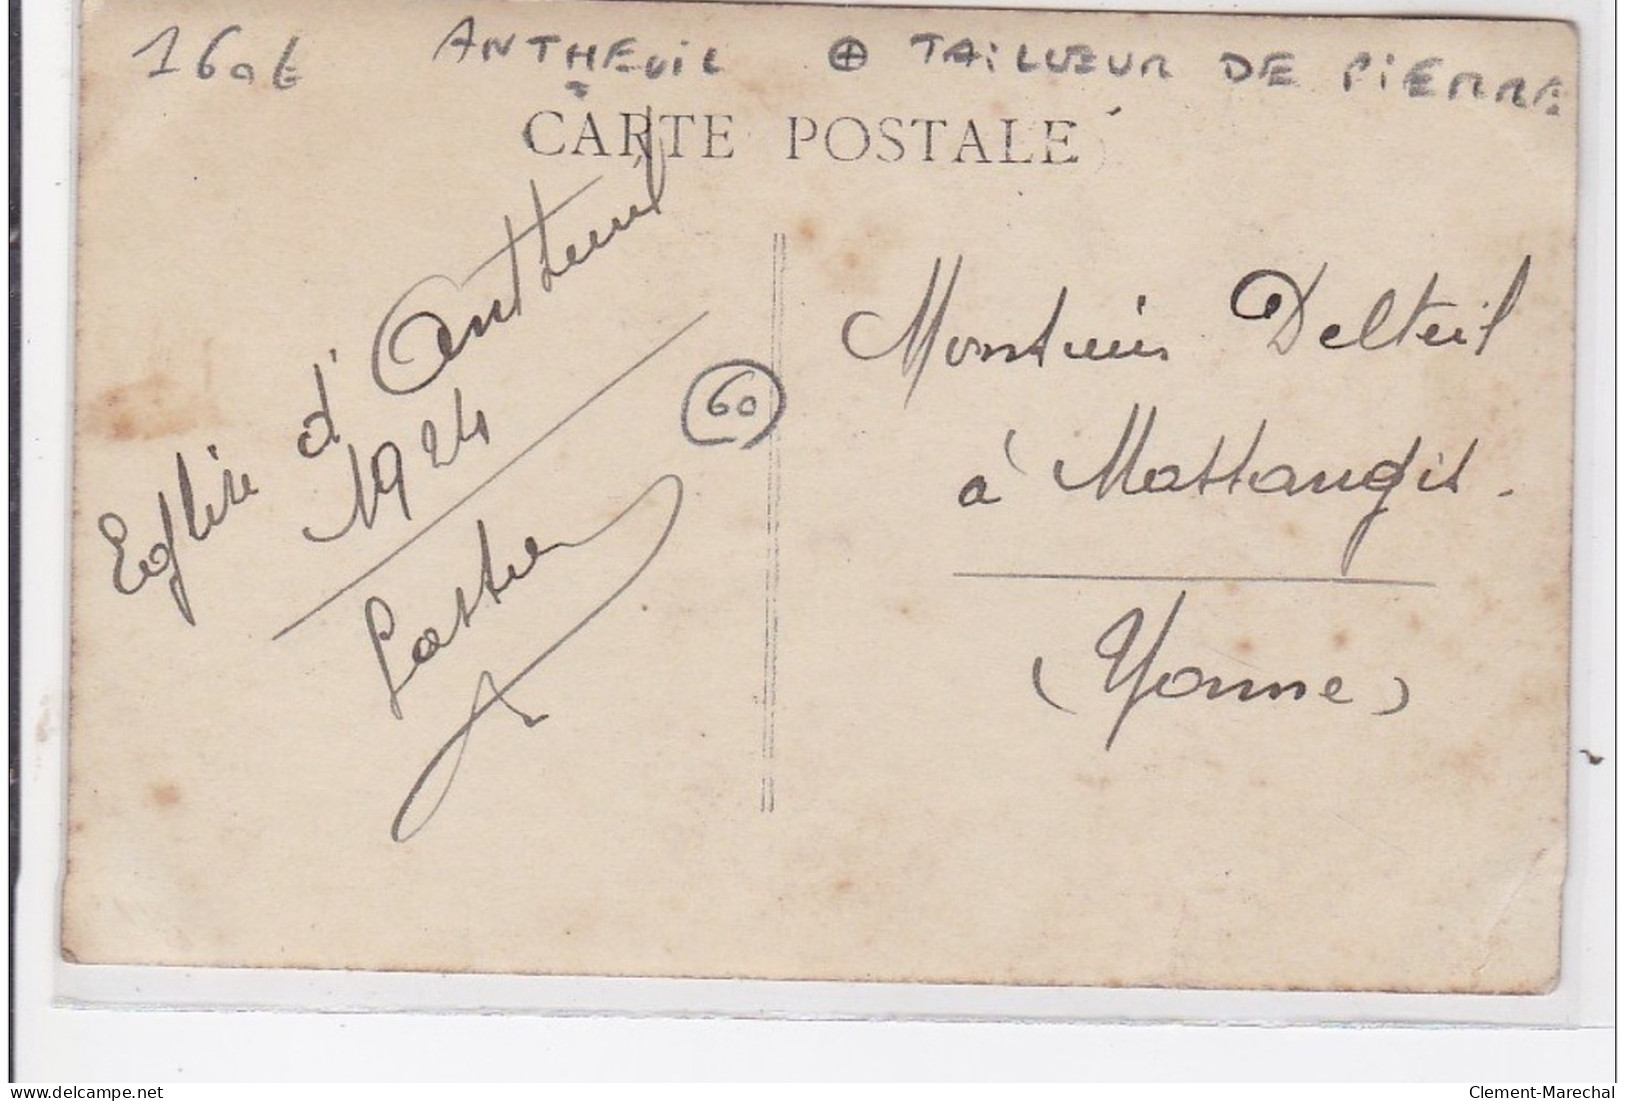 160€ ANTHEUIL ⊕ TAILLEUR DE PIERRE
CARTE POSTALE
Eglise d'Antheuil
1924
60
Monsieur Delteil
à Massangis.
(Yonne)
delcampe.net
Clement-Marechal